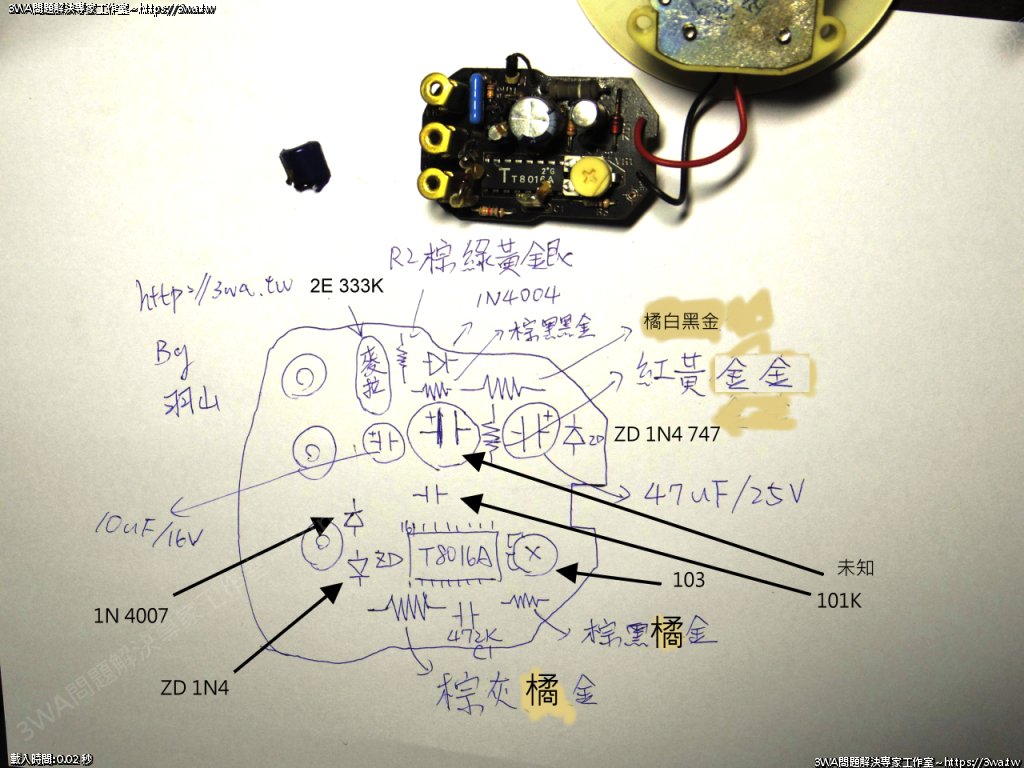 3WA問題解決專家工作室~https://3wa.tw
T 2*G
T8016A
R2棕綠黃銀
http://3wa.tw
2E 333K
1N4004
棕黑黑金
橘白黑金
By
羽山
麥拉
紅黃金金
ZD
ZD 1N4 747
10uF/16V
47uF/25V
ZD
T8016A
未知
103
101K
1N 4007
472K
C1
棕黑橘金
ZD 1N4
棕灰橘金
3WA問題解決專家工作室
載入時間:0.02 秒
3WA問題解決專家工作室~https://3wa.tw